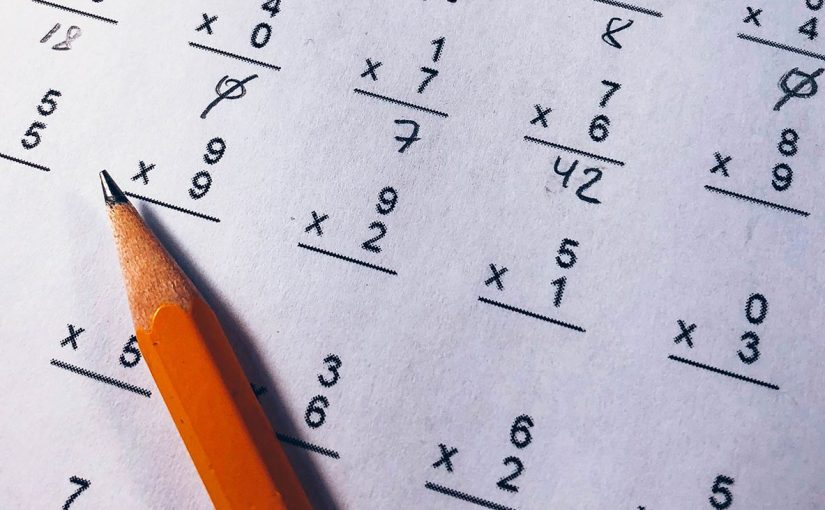 8
x 4
0
18
4
x 0
0
1
x 7
7
7
x 6
42
8
x 9
5
5
9
x 9
9
x 2
5
x 1
0
x 3
x
3
6
6
x 2
5
7